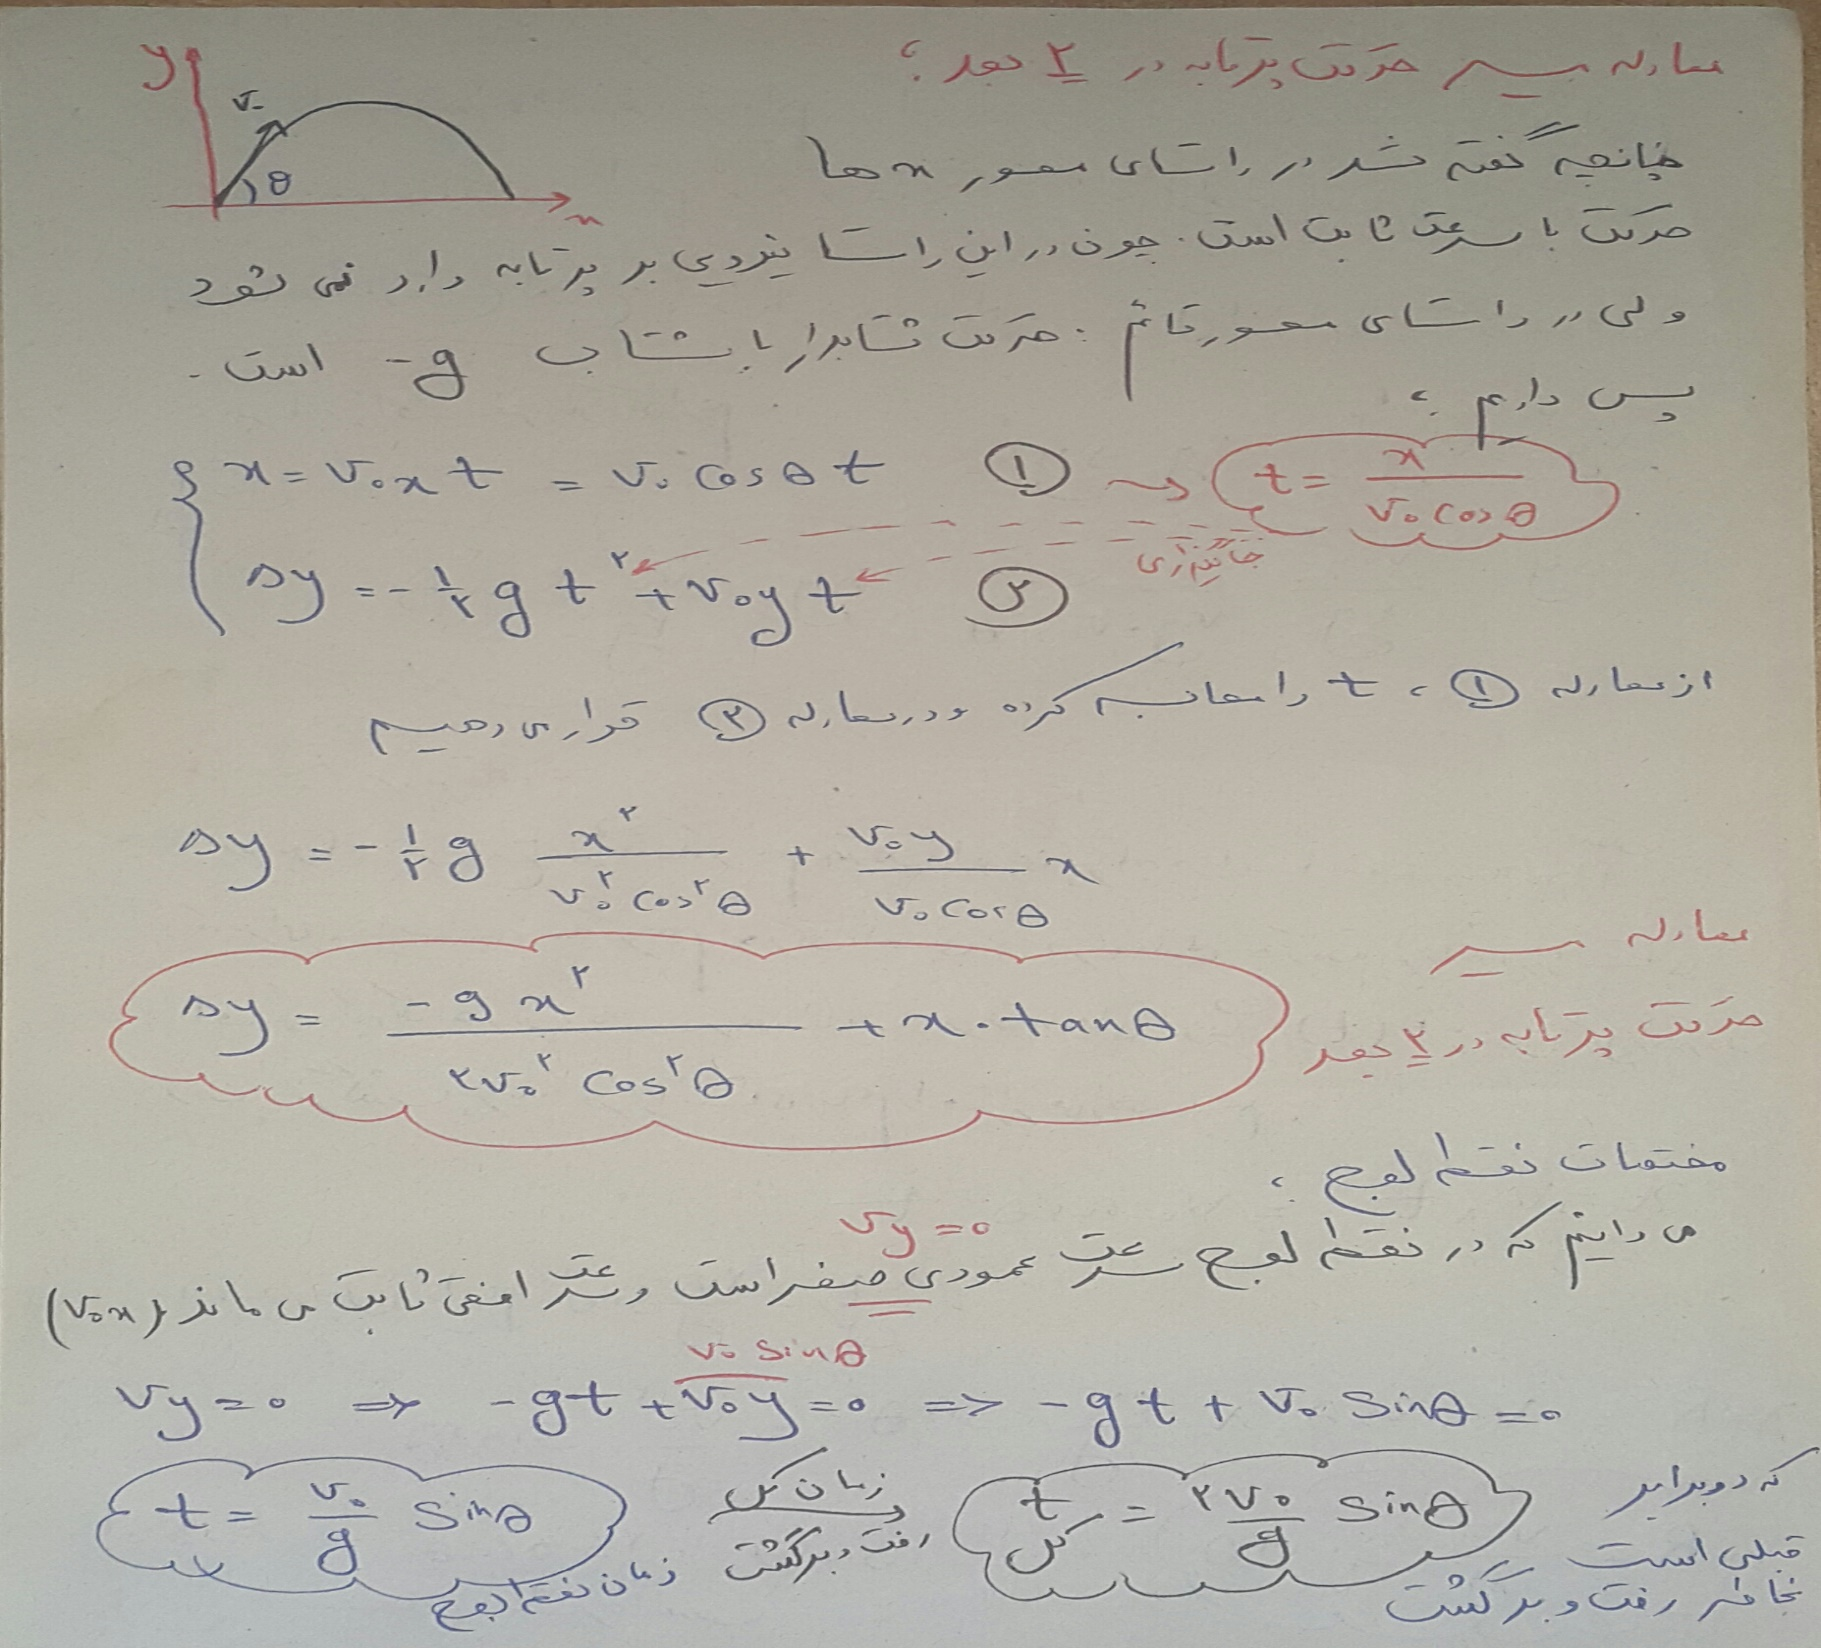 معادله مسیر حرکت پرتابه در ۲ بعد ؛
y
v₀
θ
x
چنانچه گفته شد در راستای محور x ها
حرکت با سرعت ثابت است. چون در این راستا نیرویی بر پرتابه وارد نمی شود
ولی در راستای محور قائم : حرکت شتابدار با شتاب -g است.
پس داریم ؛
x = v₀x t = v₀ cosθ t ① → t = x / v₀ cosθ
جایگذاری
Δy = -½ g t² + v₀y t ②
از معادله ① ، t را محاسبه کرده و در معادله ② قرار می دهیم
Δy = -½ g x² / v₀² cos²θ + v₀y / v₀ cosθ x
معادله مسیر
حرکت پرتابه در ۲ بعد
Δy = -g x² / ۲v₀² cos²θ + x . tanθ
مختصات نقطه اوج ؛
vy = ۰
می دانیم که در نقطه اوج سرعت عمودی صفر است و سرعت افقی ثابت می ماند (v₀x)
v₀ sinθ
vy = ۰ ⇒ -gt + v₀y = ۰ ⇒ -gt + v₀ sinθ = ۰
t = v₀/g sinθ
زمان نقطه اوج
زمان کل
رفت و برگشت
t کل = ۲v₀/g sinθ
که دو برابر
قبلی است
بخاطر رفت و برگشت